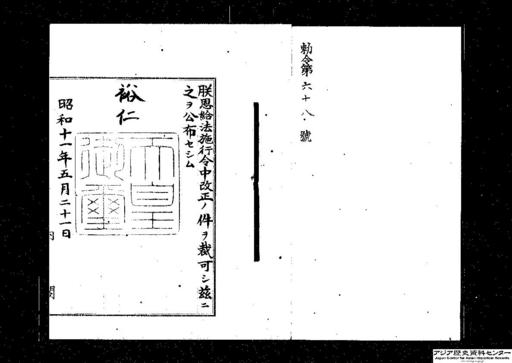 勅令第六十八號
朕恩給法施行令中改正ノ件ヲ裁可シ茲ニ
之ヲ公布セシム
裕仁
天皇
御璽
昭和十一年五月二十一日
内閣
アジア歴史資料センター
Japan Center for Asian Historical Records